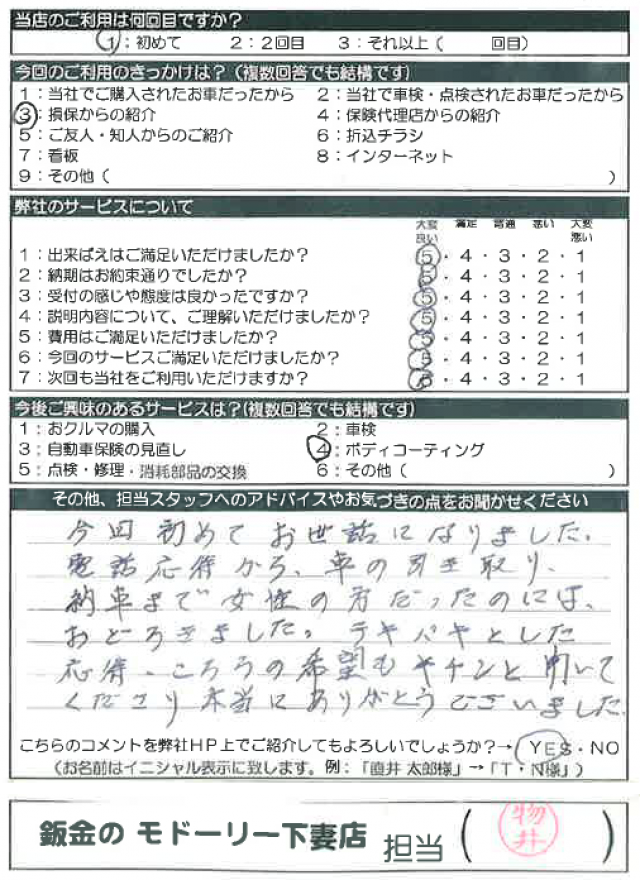 当店のご利用は何回目ですか？
1：初めて　2：2回目　3：それ以上（　　回目）
今回のご利用のきっかけは？（複数回答でも結構です）
1：当社でご購入されたお車だったから　2：当社で車検・点検されたお車だったから
3：損保からの紹介　4：保険代理店からの紹介
5：ご友人・知人からのご紹介　6：折込チラシ
7：看板　8：インターネット
9：その他（　　）
弊社のサービスについて
大変良い　満足　普通　悪い　大変悪い
1：出来ばえはご満足いただけましたか？　5・4・3・2・1
2：納期はお約束通りでしたか？　5・4・3・2・1
3：受付の感じや態度は良かったですか？　5・4・3・2・1
4：説明内容について、ご理解いただけましたか？　5・4・3・2・1
5：費用はご満足いただけましたか？　5・4・3・2・1
6：今回のサービスご満足いただけましたか？　5・4・3・2・1
7：次回も当社をご利用いただけますか？　5・4・3・2・1
今後ご興味のあるサービスは？（複数回答でも結構です）
1：おクルマの購入　2：車検
3：自動車保険の見直し　4：ボディコーティング
5：点検・修理・消耗部品の交換　6：その他（　　）
その他、担当スタッフへのアドバイスやお気づきの点をお聞かせください
今回初めてお世話になりました。
電話応待から、車の引き取り、
納車まで女性の方だったのには、
おどろきました。テキパキとした
応待、こちらの希望もキチンと聞いて
くださり本当にありがとうございました。
こちらのコメントを弊社HP上でご紹介してもよろしいでしょうか？→ YES・NO
（お名前はイニシャル表示に致します。例：「直井 太郎様」→「T・N様」）
鈑金の モドーリー下妻店　担当（物井）